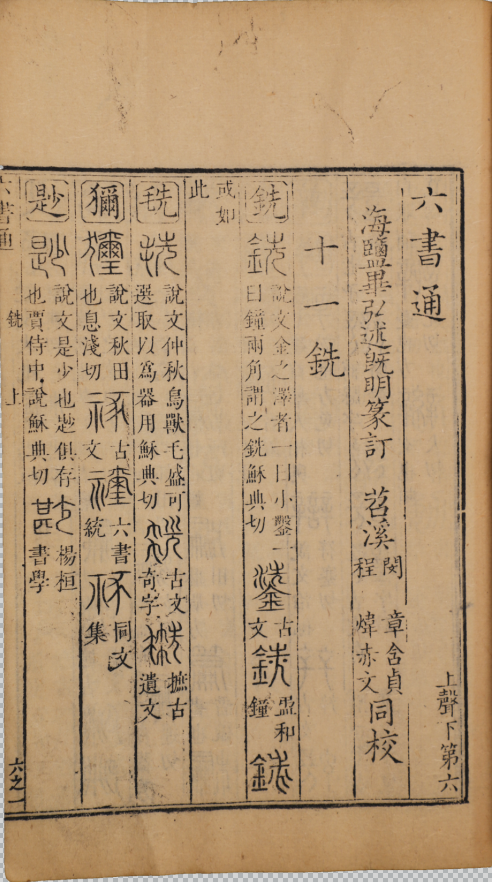 六書通
上聲下第六
海鹽畢弘述既明篆訂
苕溪
閔章含貞
程煒赤文
同校
十一銑
銑
說文金之澤者一曰小鑿一
曰鐘兩角謂之銑穌典切
古文
盄和鐘
或如此
毨
說文仲秋鳥獸毛盛可
選取以為器用穌典切
古文奇字
摭古遺文
獮
說文秋田
也息淺切
古文
六書統
同文集
尟
說文是少也尟俱存
也賈侍中說穌典切
楊桓書學
六書通
銑
上
六之一